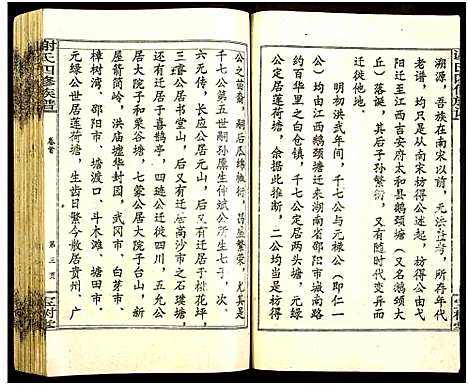 溯源，吾族在南宋以前，无洪荒考，所存年代
老谱，均只是从南宋枋得公起，枋得公由弋
阳迁至江西吉安府太和县鹅颈塘（又名鹅颈大
丘）落诞，其后子孙繁衍，又有随时代变动而
迁徙他地。
明初洪武年间，千七公与元禄公（即仁一
公）均由江西鹅颈塘迁来湖南省邵阳市城南路
约百华里之白仓镇，千七公定居两头塘，元禄
公定居莲荷塘，余据此推断，二公均当是枋得
公之苗裔，嗣后瓜绵椒衍，昌盛繁荣，尤其是
千七公第五世嗣孙廉生伸斌公所生七子，次、
六无传，长应公居元山，后又有迁居于桃花坪，
三睿公居书堂山，后又有迁居高沙市之石璞塘，
四公迁居于喜鹊亭，四公迁徙四川，五允公
居大院子和粟谷塘，七蒙公居大院子台山，
屋箭筒岭，洪庙墟华封园，武冈市，白芽市，
樟树湾、邵阳市、塘渡口、斗木滩、塘田市，
元禄公世居莲荷塘，生齿日繁今散居贵州、广
谢氏四修族谱
卷首
第三页
宝树堂